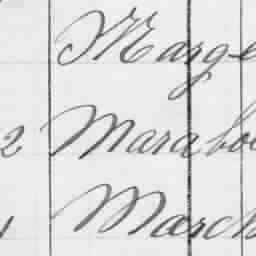 Marge
2 Marabou
1 March